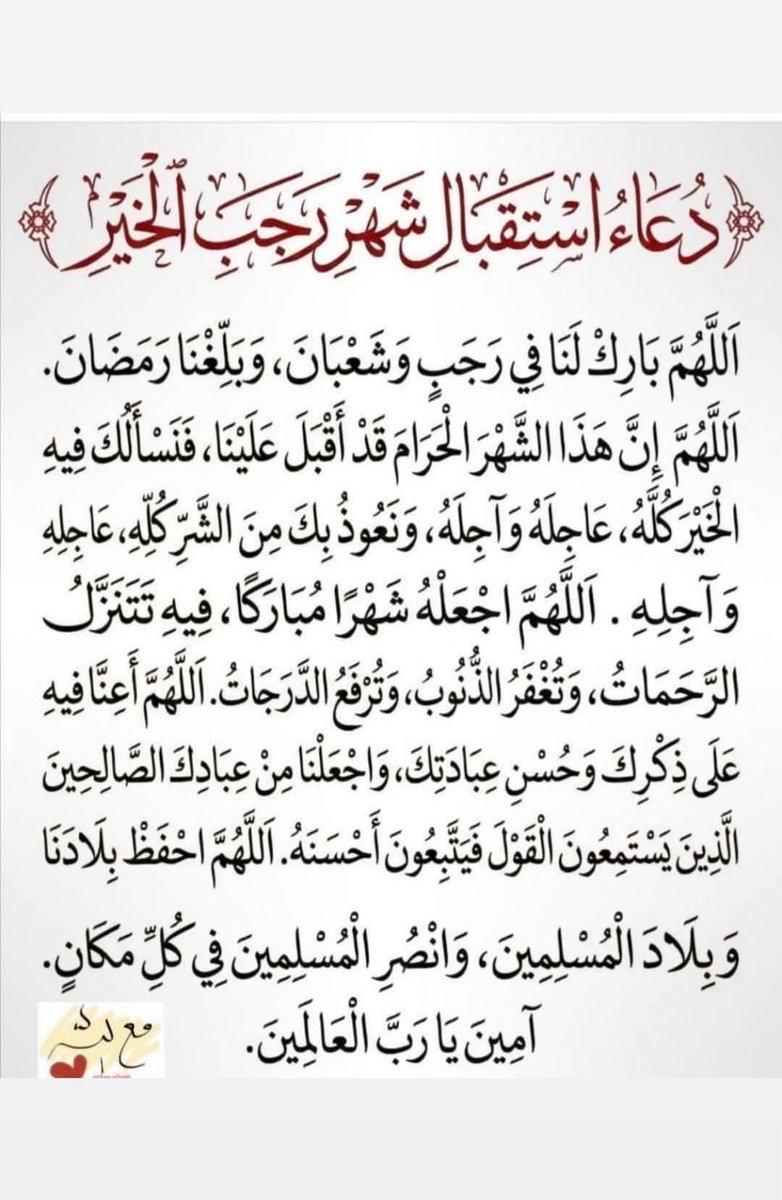 دُعَاءُ اسْتِقْبَالِ شَهْرِ رَجَبَ ٱلْخَيْرِ
اَللَّهُمَّ بَارِكْ لَنَا فِي رَجَبٍ وَشَعْبَانَ، وَبَلِّغْنَا رَمَضَانَ.
اَللَّهُمَّ إِنَّ هَذَا الشَّهْرَ الْحَرَامَ قَدْ أَقْبَلَ عَلَيْنَا، فَنَسْأَلُكَ فِيهِ
الْخَيْرَ كُلَّهُ، عَاجِلَهُ وَآجِلَهُ، وَنَعُوذُ بِكَ مِنَ الشَّرِّ كُلِّهِ، عَاجِلِهِ
وَآجِلِهِ . اَللَّهُمَّ اجْعَلْهُ شَهْرًا مُبَارَكًا، فِيهِ تَتَنَزَّلُ
الرَّحَمَاتُ، وَتُغْفَرُ الذُّنُوبُ، وَتُرْفَعُ الدَّرَجَاتُ. اَللَّهُمَّ أَعِنَّا فِيهِ
عَلَى ذِكْرِكَ وَحُسْنِ عِبَادَتِكَ، وَاجْعَلْنَا مِنْ عِبَادِكَ الصَّالِحِينَ
الَّذِينَ يَسْتَمِعُونَ الْقَوْلَ فَيَتَّبِعُونَ أَحْسَنَهُ. اَللَّهُمَّ احْفَظْ بِلَادَنَا
وَبِلَادَ الْمُسْلِمِينَ، وَانْصُرِ الْمُسْلِمِينَ فِي كُلِّ مَكَانٍ.
آمِينَ يَا رَبَّ الْعَالَمِينَ.